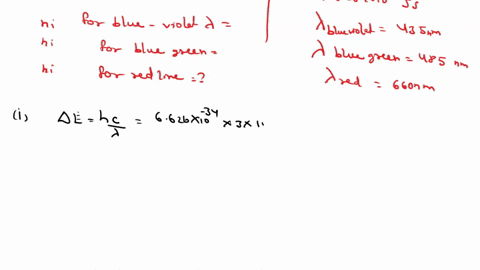 ni for blue-violet λ =
ni for blue green =
ni for red line = ?
λ blue violet = 435 nm
λ blue green = 485 nm
λ red = 660nm
(i) ΔE = hc/λ = 6.626×10⁻³⁴ × 3 × 1